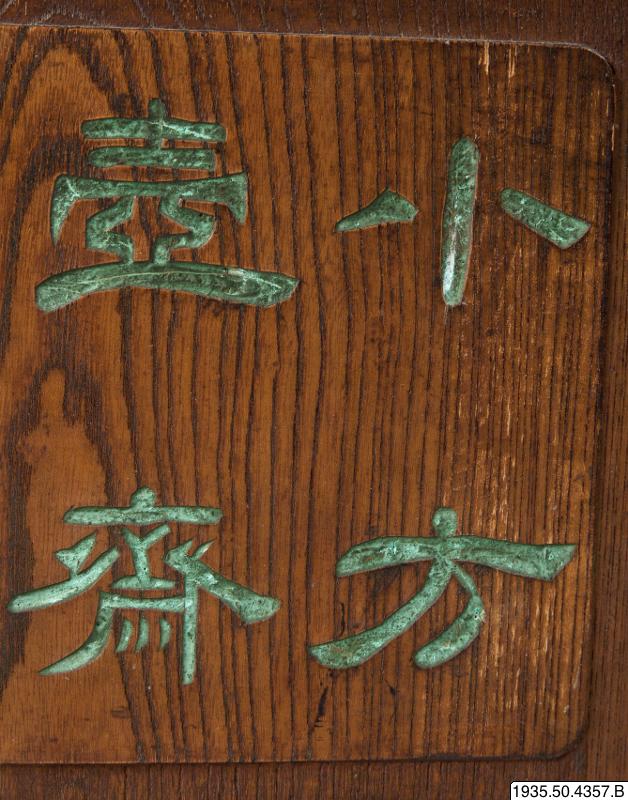 小方
壺齋
1935.50.4357.B